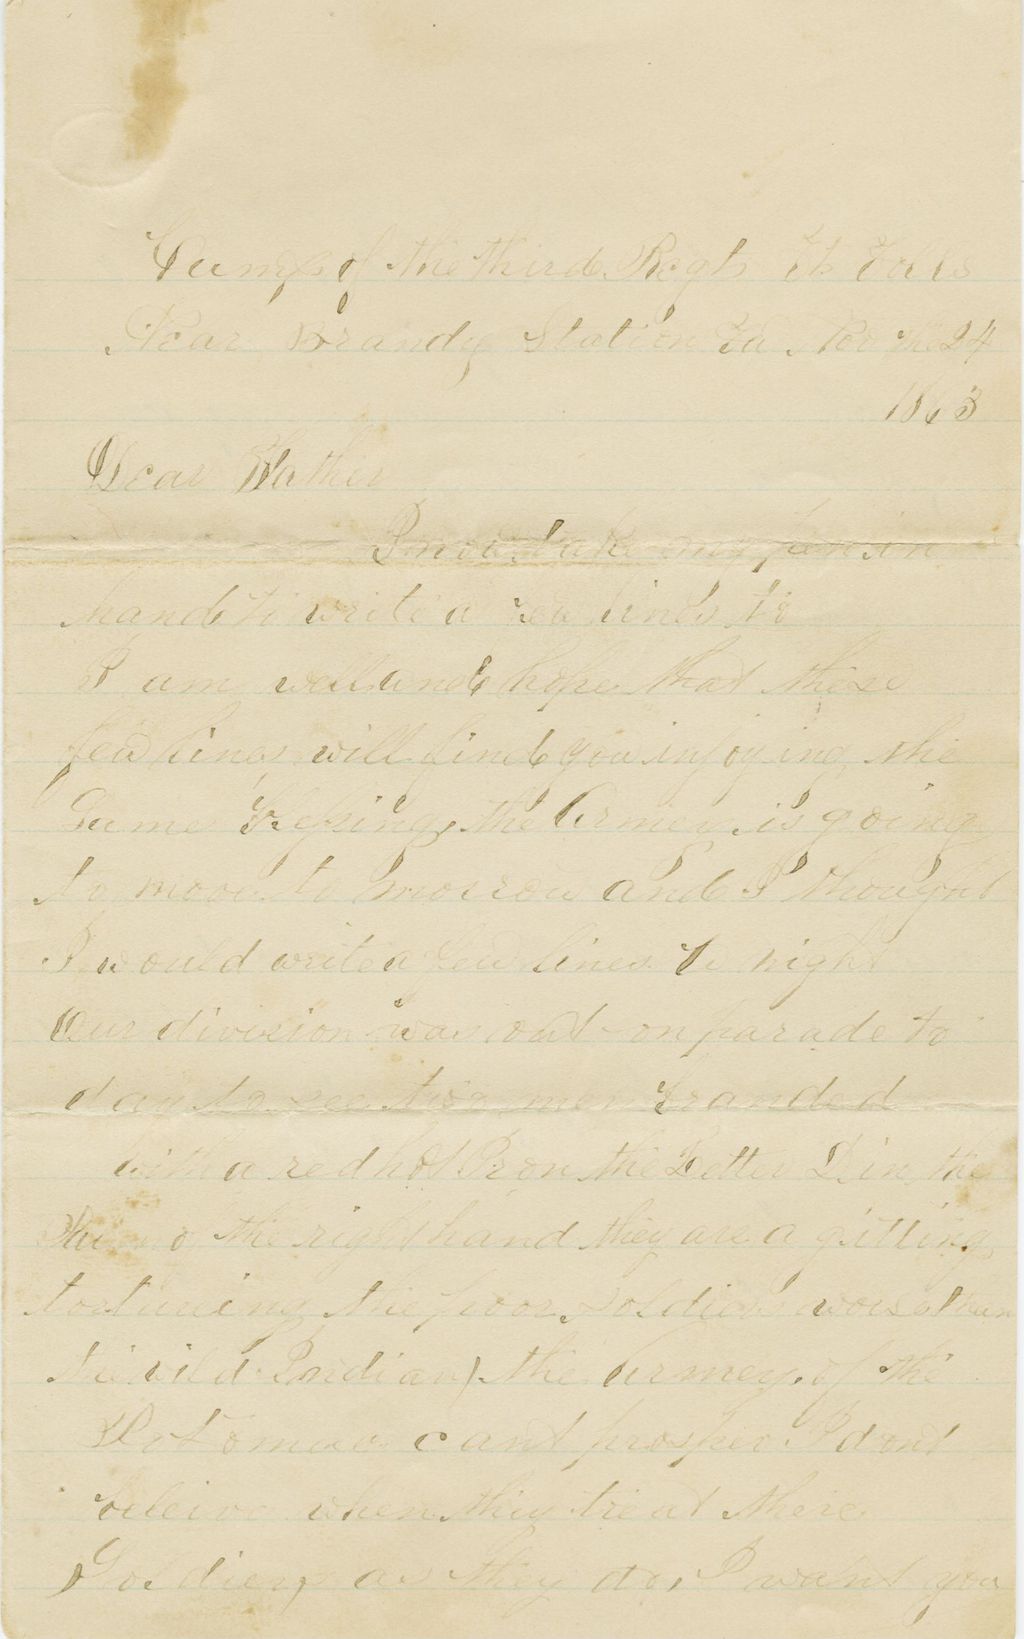 Camp of the third Regt Vt Vols
Near Brandy Station Va Nov the 24
1863
Dear Father
I now take my pen in
hand to write a few lines to
I am well and hope that these
few lines will find you injoying the
Same Blessing, the Armey is going
to move to morrow and I thought
I would write a few lines to night
Our division was out on parade to
day to see two men branded
with a red hot Iron the Letter D in the
the right hand they are a gitting
torturing the poor soldiers worse than
the wild Indians the Armey of the
Potomac cant prosper I dont
beleive when they treat there
Soldiers as they do, I want you